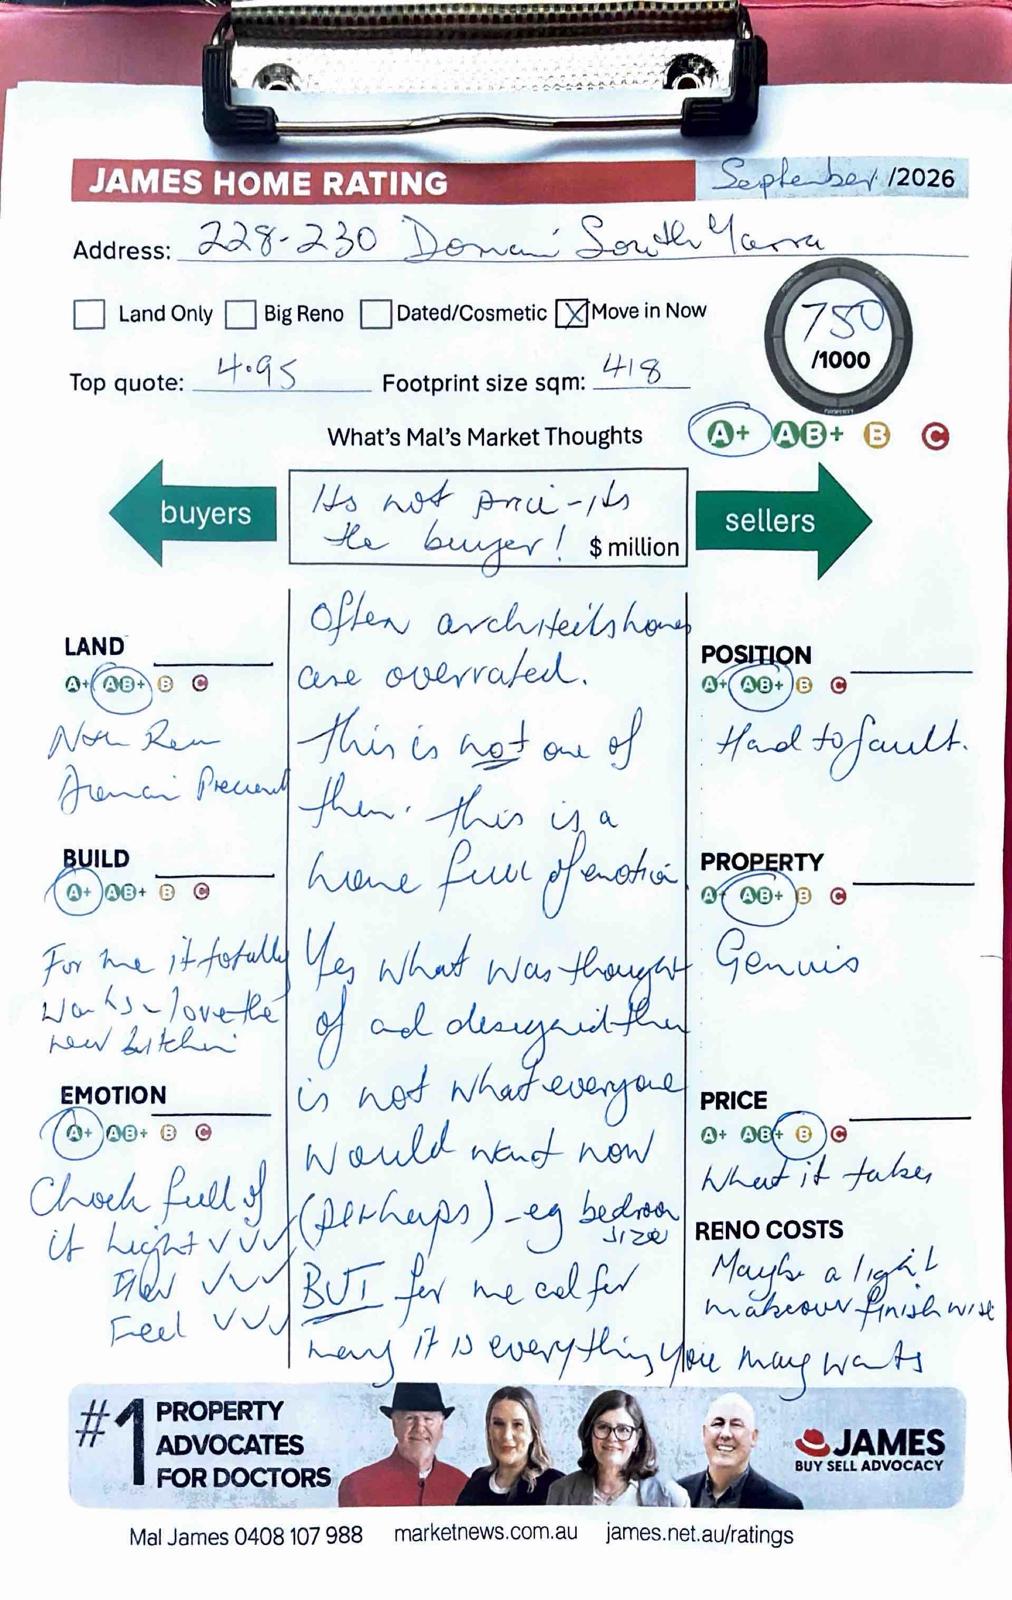 JAMES HOME RATING
September /2026
Address: 228-230 Domain South Yarra
Land Only Big Reno Dated/Cosmetic Move in Now
750
/1000
Top quote: 4.95 Footprint size sqm: 418
What's Mal's Market Thoughts
A+ AB+ B C
buyers
Its not price - its
the buyer! $ million
sellers
LAND
A+ AB+ B C
Non Rear
Domain Precinct
BUILD
A+ AB+ B C
For me it totally
works - love the
new kitchen
EMOTION
A+ AB+ B C
Chock full of
it Light ✓✓✓
Flow ✓✓✓
Feel ✓✓✓
Often architects homes
are overrated.
This is not one of
them. This is a
home full of emotion
Yes what was thought
of and designed then
is not what everyone
would want now
(perhaps) - eg bedroom
size
BUT for me and for
many it is everything you may wants
POSITION
A+ AB+ B C
Hard to fault.
PROPERTY
A+ AB+ B C
Genuis
PRICE
A+ AB+ B C
What it takes
RENO COSTS
Maybe a light
makeover finish wise
#1 PROPERTY
ADVOCATES
FOR DOCTORS
JAMES
BUY SELL ADVOCACY
Mal James 0408 107 988 marketnews.com.au james.net.au/ratings